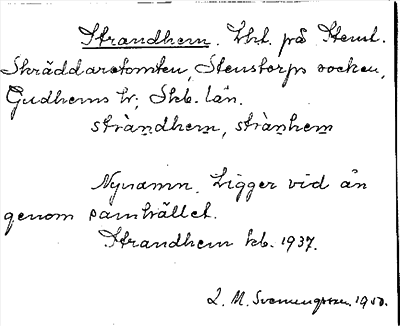 Strandhem. Lht. på Stenst.
Skräddaretomten, Stenstorps socken,
Gudhems hr; Skb. län.
stràndhem, strànhem
Nynamn. Ligger vid ån
genom samhället.
Strandhem kb. 1937.
L. M. Svennungsson. 1950.